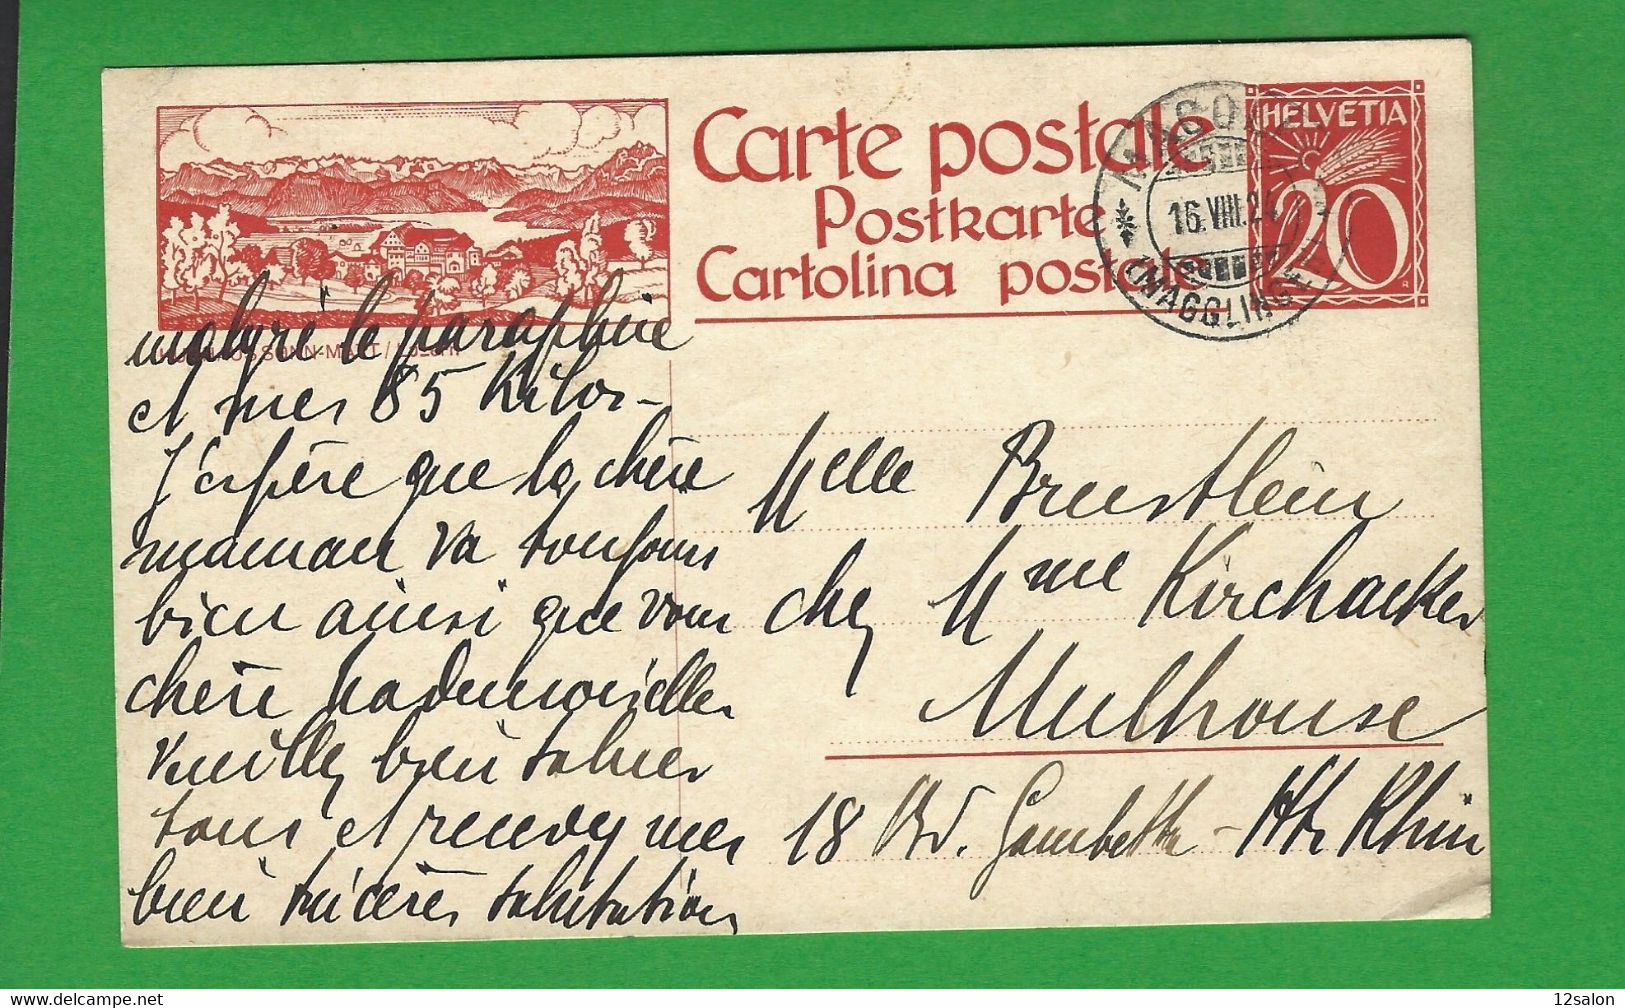 Carte postale
Postkarte
Cartolina postale
HELVETIA
20
16.VIII.24
(MAGGLINGEN)
malgré le paraphine
et mes 85 Kilos –
J'espère que la chère
maman va toujours
bien ainsi que vous
chère Mademoiselle
Veuillez bien saluer
tous et recevez mes
bien sincères salutations
Melle Breustlein
chez Mme Kirchacker
Mulhouse
18 Bd. Gambetta – Ht Rhin
www.delcampe.net
12salon